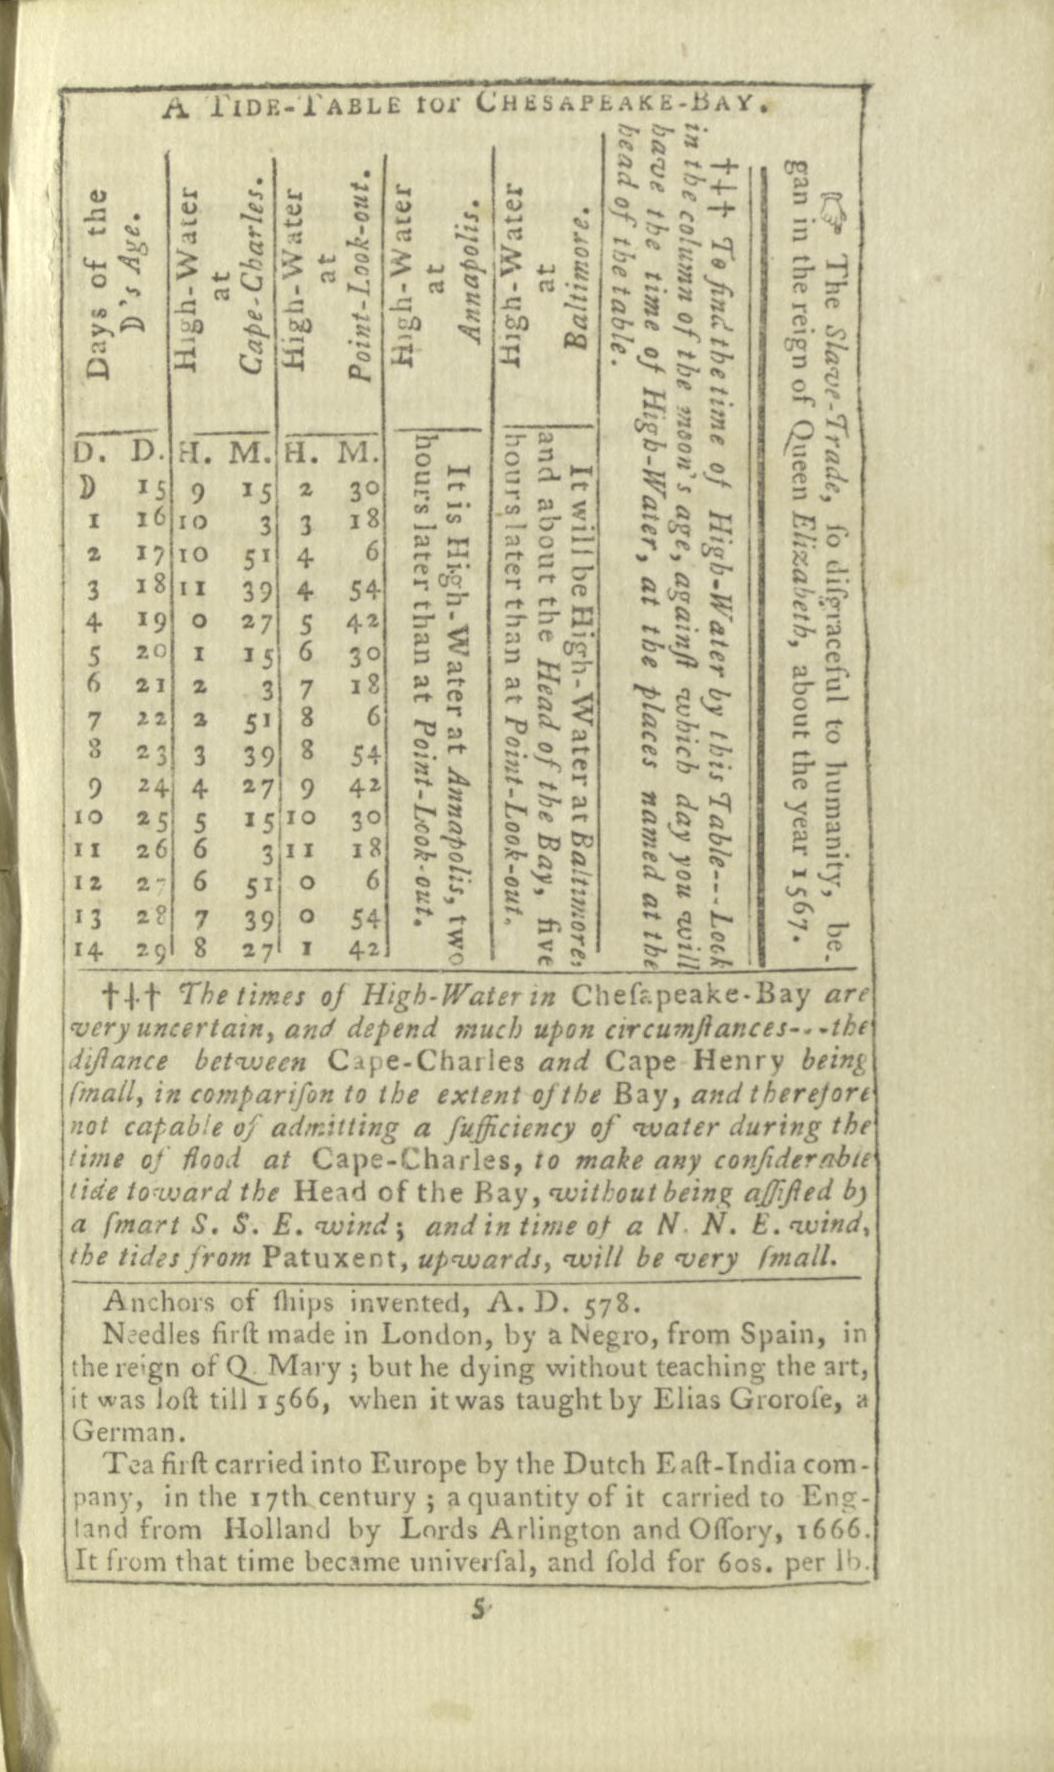 A TIDE-TABLE for CHESAPEAKE-BAY.
Days of the
D's Age.
High-Water
at
Cape-Charles.
High-Water
at
Point-Look-out.
High-Water
at
Annapolis.
High-Water
at
Baltimore.
D. D. H. M. H. M.
D 15 9 15 2 30
1 16 10 3 3 18
2 17 10 51 4 6
3 18 11 39 4 54
4 19 0 27 5 42
5 20 1 15 6 30
6 21 2 3 7 18
7 22 2 51 8 6
8 23 3 39 8 54
9 24 4 27 9 42
10 25 5 15 10 30
11 26 6 3 11 18
12 27 6 51 0 6
13 28 7 39 0 54
14 29 8 27 1 42
It is High-Water at Annapolis, two
hours later than at Point-Look-out.
It will be High-Water at Baltimore,
and about the Head of the Bay, five
hours later than at Point-Look-out.
††† To find the time of High-Water by this Table---Look
in the column of the moon's age, againſt which day you will
have the time of High-Water, at the places named at the
head of the table.
☞ The Slave-Trade, ſo diſgraceful to humanity, be-
gan in the reign of Queen Elizabeth, about the year 1567.
†‡† The times of High-Water in Cheſapeake-Bay are
very uncertain, and depend much upon circumſtances---the
diſtance between Cape-Charles and Cape Henry being
ſmall, in compariſon to the extent of the Bay, and therefore
not capable of admitting a ſufficiency of water during the
time of flood at Cape-Charles, to make any conſiderable
tide toward the Head of the Bay, without being aſſiſted by
a ſmart S. S. E. wind; and in time of a N. N. E. wind,
the tides from Patuxent, upwards, will be very ſmall.
Anchors of ſhips invented, A. D. 578.
Needles firſt made in London, by a Negro, from Spain, in
the reign of Q. Mary; but he dying without teaching the art,
it was loſt till 1566, when it was taught by Elias Groroſe, a
German.
Tea firſt carried into Europe by the Dutch Eaſt-India com-
pany, in the 17th century; a quantity of it carried to Eng-
land from Holland by Lords Arlington and Oſſory, 1666.
It from that time became univerſal, and ſold for 60s. per lb.
5